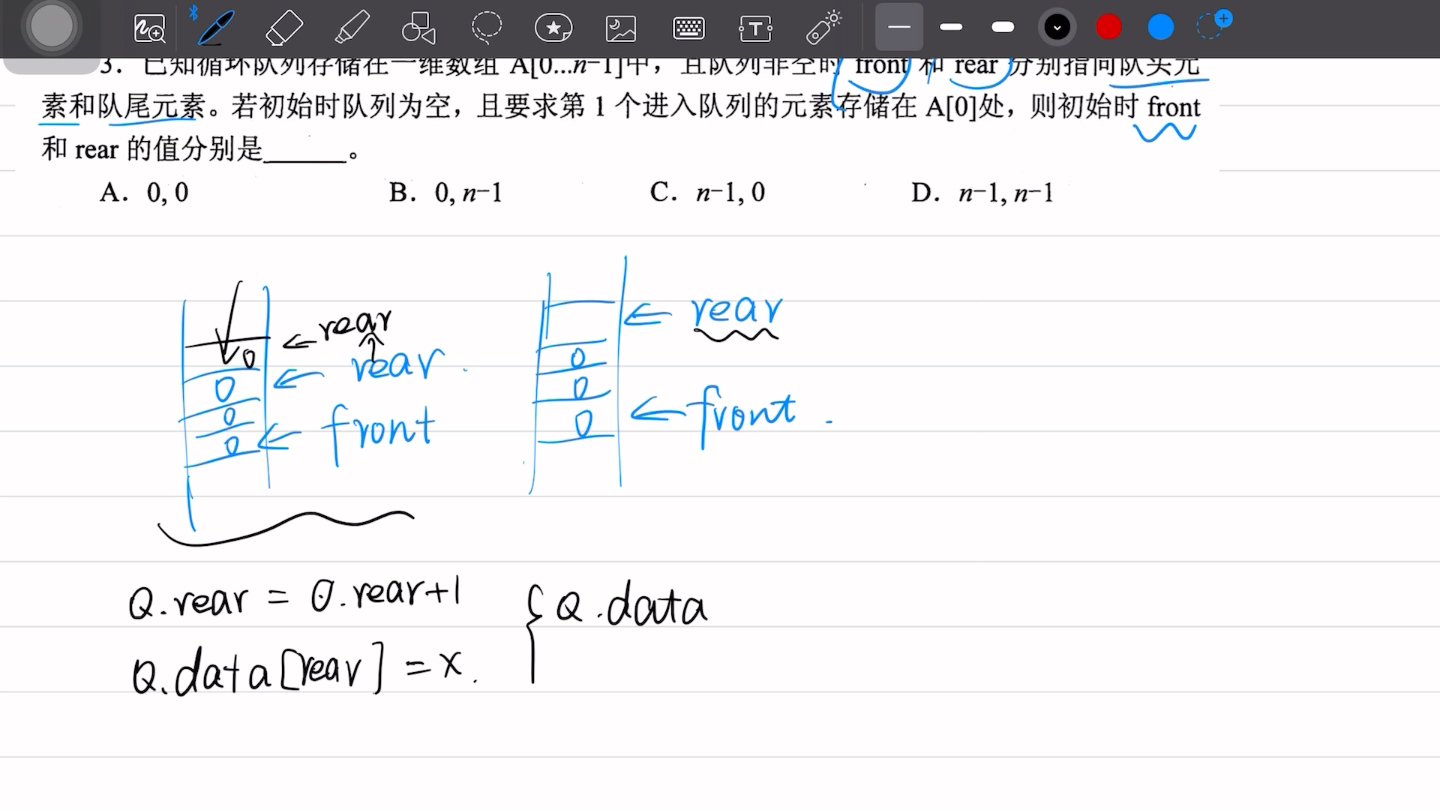 3．已知循环队列存储在一维数组 A[0...n−1]中，且队列非空时 front 和 rear 分别指向队头元
素和队尾元素。若初始时队列为空，且要求第 1 个进入队列的元素存储在 A[0]处，则初始时 front
和 rear 的值分别是______。
A．0, 0 B．0, n−1 C．n−1, 0 D．n−1, n−1
rear
rear
front
rear
front
0
0
0
0
0
0
0
Q.rear = Q.rear+1
Q.data[rear] = x.
{ Q.data